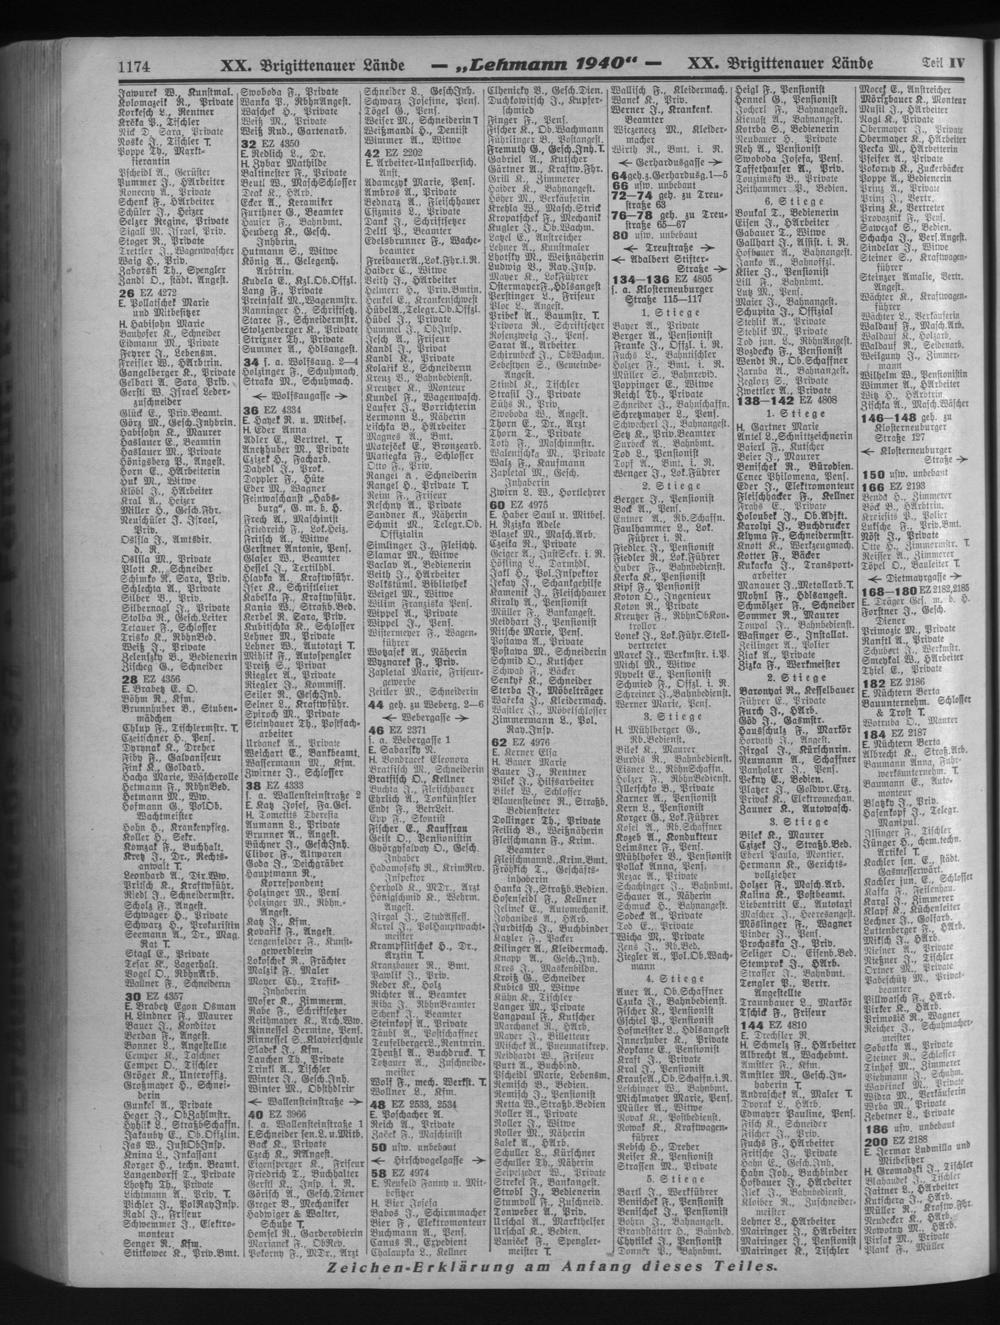 1174
XX. Brigittenauer Lände — „Lehmann 1940“ — XX. Brigittenauer Lände
Teil IV
Jawurek W., Kunstmal.
Kolomazeik R., Private
Korkesch L., Rentner
Nick D. Sara, Private
Noske J., Tischler T.
Poppe Th., Markt-
fierantin
Pscheidl A., Gerüster
Pummer J., HArbeiter
Ronerny A., Private
Schenk F., HArbeiter
Schüler J., Heizer
Selzer Regine, Private
Sigall M. Israel, Priv.
Stoger R., Private
Trettler J., Wagenwascher
Waig H., Priv.
Zaborski Th., Spengler
Zandl O., städt. Angest.
26 EZ 4272
E. Pollatschek Marie
und Mitbesitzer
H. Habisohn Marie
Bauhofer K., Schneider
Eidmann M., Private
Feyrer J., Lebensm.
Freißler W., HArbtrin.
Gangelberger K., Private
Gelbart A. Sara, Priv.
Gerstl W. Israel Leder-
zuschneider
Glück E., Priv.Beamt.
Görz M., Gesch.Inhbrin.
Habisohn K., Maurer
Haslauer E., Beamtin
Haslauer M., Private
Hönigsberg P., Angest.
Horn E., HArbeiterin
Huk M., Witwe
Klöbl J., HArbeiter
Kral A., Heizer
Miller H., Gesch.Fhr.
Neuschüler J. Israel,
Priv.
Oslsla J., Amtsdir.
d. R.
Oslsla M., Private
Plott K., Schneider
Schimko R. Sara, Priv.
Schlechta A., Private
Silber B., Priv.
Silbernagl J., Private
Stolba R., Gesch.Leiter
Tetauer F., Schlosser
Trisko K., RbhnBed.
Weiß J., Private
Zelensky B., Bedienerin
Zischeg G., Schneider
28 EZ 4356
E. Brabetz E. O.
Böhm R., Kfm.
Brunnhuber B., Stuben-
mädchen
Chlup F., Tischlermstr. T.
Czetschner H., Pens.
Dyrynak K., Dreher
Fiby F., Galvaniseur
Fink K., Goldarb.
Hacha Marie, Wäscherolle
Hetmann F., RbhnBed.
Hetmann M., Ww.
Hofmann G., PolOb.
Wachtmeister
Hohn H., Krankenpfleg.
Koller H., Sekr.
Komzak F., Buchhalt.
Kretz J., Dr., Rechts-
anwalt T.
Leonhard A., Dir.Ww.
Prilsch K., Kraftwführ.
Riedl J., Schneidermstr.
Scholz F., Angest.
Schwager H., Private
Schwarz H., Prokuristin
Seemann A., Dr., Mag.
Rat T.
Stagl E., Private
Tesar K., Lagerhalt.
Vogel O., RbhnArb.
Wallner F., Schneiderin
30 EZ 4357
E. Brabetz Egon Osman
H. Lindner F., Maurer
Bauer J., Konditor
Berdan F., Angest.
Bonner L., Angestellte
Cemper K., Taschner
Cemper O., Tischler
Gröger K., Unteroffz.
Großmayer H., Schnei-
derin
Gunkel A., Private
Heger J., ObZahlmstr.
Hyhlik L., StraßbSchaffn.
Jakauby E., Ob.Offzlin.
Jas W., JustObInsp.
Knina L., Inkassant
Korger H., techn. Beamt.
Langendorff T., Private
Lhotky Th., Private
Lichtmann A., Priv. T.
Pichler J., PolRayInsp.
Radl J., Friseur
Schwemmer J., Elektro-
monteur
Senger R., Kfm.
Stitkowec K., Priv.Bmt.
Swoboda F., Private
Wanka P., RbhnAngest.
Waschek H., Private
Weiß M., Private
Weiß Rud., Gartenarb.
32 EZ 4350
E. Redlich L., Dr.
H. Zybar Mathilde
Baltinester F., Private
Beutl W., MaschSchlosser
Deak K., HArb.
Ecker A., Keramiker
Furthner G., Beamter
Hauser F., Bahnbmt.
Heuberg K., Gesch.
Inhbrin.
Hutmann S., Witwe
König A., Gelegenh.
Arbtrin.
Kubela E., Kzl.Ob.Offzl.
Lang F., Private
Preinfalk M., Wagenmstr.
Ranninger H., Schriftsetz.
Staree F., Schneidermstr.
Stolzenberger K., Private
Strizner Th., Private
Summer A., Hdlsangest.
34 s. a. Wolfsaug. 2—4
Holzinger F., Schuhmach.
Straka M., Schuhmach.
Wolfsaugasse
36 EZ 4334
E. Hayek R. u. Mitbes.
H. Eder Anna
Adler E., Vertret. T.
Anetzhuber M., Private
Czizek H., Facharb.
Dahedl J., Prok.
Doppler F., Hüte
Eder M., Wagner
Feinwaschanst. „Habs-
burg“, G. m. b. H.
Frech A., Maschinist
Friedrich F., Lok.Heiz.
Fritsch A., Witwe
Gerstner Antonie, Pens.
Glaser W., Beamter
Hessel J., Textilhdl.
Hlobka A., Kraftwführ.
Iser K., Schriftleiter
Kabelka F., Kraftwführ.
Kania W., Straßb.Bed.
Kerbel R. Sara, Priv.
Kubitschka K., Schlosser
Lehner M., Private
Lehner W., Autotaxi T.
Mihlik F., Autospengler
Preiß S., Privat
Riegler A., Private
Riegler J., Kommiss.
Seiler R., GeschInh.
Selner L., Kraftwführ.
Spiroch M., Private
Steinbauer Th., Postfach-
arbeiter
Urbanek A., Private
Weichart E., Bankbeamt.
Wassermann M., Kfm.
Zwirner J., Schlosser
38 EZ 4333
s. a. Wallensteinstraße 2
E. Katz Josef, Fa.Ges.
H. Tometits Theresia
Aumann L., Private
Brunner A., Angest.
Büchner J., GeschInh.
Clibor F., Altwaren
Gada J., Deichgräber
Hauptmann R.,
Korrespondent
Holzinger M., Pens.
Holzinger M., Rbhn.-
Angest.
Katz J., Kfm.
Kovarik F., Angest.
Lengenfelder F., Kunst-
gewerblerin
Lofoscher R., Frächter
Malzik F., Maler
Mayer Ch., Trafik-
Inhaberin
Moser K., Zimmerm.
Rabe F., Schriftsetzer
Reithmayer K., Arch.Ww.
Rinnessel Hermine, Pens.
Rinnessel S., Klavierschule
Sladek J., Kfm.
Tauchen Th., Private
Trinkl A., Tischler
Winter J., Gesch.Inh.
Winter M., Obsthdlrin
Wallensteinstraße
40 EZ 3966
s. a. Wallensteinstraße 1
E. Schneider sen. L. u. Mitb.
Back K., Private
Czech K., RAngest.
Eigensperger K., Friseur
Friedrich T., Buchhalter
Gerstl K., Insp. i. R.
Görisch A., Gesch.Diener
Greger B., Mechaniker
Hadwiger & Walter,
Schuhe T.
Hemsel R., Garderobierin
Marianek F., ObRev.
Pokorny F., MDr., Arzt
Schneider L., GeschJnh.
Schwarz Josefine, Pens.
Tögel G., Pens.
Weiser M., Schneiderin T
Weißmandl H., Dentist
Wimmer A., Witwe
42 EZ 2202
E. Arbeiter-Unfallversich.
Anst.
Adamczyk Marie, Pens.
Ambros A., Private
Bednarz A., Fleischhauer
Cizmits L., Private
Danf J., Schriftsetzer
Deltl P., Beamter
Edelsbrunner F., Wache-
beamter
Freibauer A., Lok.Fhr.i.R.
Haider C., Witwe
Heith J., HArbeiter
Helmert H., Priv.Bmtin.
Henkel E., Krankenschwest
Hübel A., Telegr.Ob.Offzl.
Hübel J., Private
Hummel J., ObInsp.
Jesch A., Friseur
Kandl J., Privat
Kandl K., Private
Kolarik L., Schneiderin
Krenz B., Bahnbedienst.
Kreutzer K., Monteur
Kundel F., Wagenwasch.
Laufer J., Vorrichterin
Lermann L., Näherin
Lischka B., HArbeiter
Magnes A., Bmt.
Matejcek E., Bronzearb.
Matiegka F., Schlosser
Otto F., Priv.
Rangel A., Schneiderin
Rangel H., Private T.
Reim F., Friseur
Reschny A., Private
Sandner A., Näherin
Schmit M., Telegr.Ob.
Offizialin
Simlinger J., Fleischh.
Slamar M., Witwe
Vaclav A., Bedienerin
Veith J., HArbeiter
Volkstüml. Bibliothek
Weigel M., Witwe
Wilim Franziska Pens.
Wippel A., Private
Wippel J., Pens.
Wistermeyer F., Wagen-
führer
Wotasek A., Näherin
Wyznarek F., Priv.
Zapletal Marie, Friseur-
gewerbe
Zeitler M., Schneiderin
44 geh. zu Weberg. 2—6
Webergasse
46 EZ 2371
s. a. Webergasse 1
E. Sabarsky N.
H. Vondracek Eleonora
Bratisich M., Schneiderin
Bratisich O., Kellner
Buchta J., Fleischhauer
Ehrlich A., Tonkünstler
Endt F., BetrLeit.
Epp F., Skontist
Fischer E., Kauffrau
Geist O., Pensionistin
Györgyfalvay O., Gesch.
Inhaber
Hadamofsky R., KrimRev.
Inspektor
Herhold K., MDr., Arzt
Hönigschmid K., Wehrm.
Angest.
Jirgal J., StudAssess.
Karel J., PolHauptwacht-
meister
Krampflitschek H., Dr.,
Arztin T.
Kranzbauer R., Bmt.
Pawlik J., Priv.
Reder K., Holz
Richter A., Beamter
Riha J., RbhnBeamter
Schenk J., Beamter
Steinkopf A., Private
Täubl A., Postschaffner
Teufelsberger L., Rentnrin.
Theußl A., Buchdruck. T.
Tobaner A., Zuschneide-
meister
Wolf F., mech. Werkst. T.
Wollner L., Kfm.
48 EZ 2533, 2534
E. Poschacher A.
Reich A., Private
Zacek F., Maschinist
50 usw. unbebaut
Hirschvogelgasse
58 EZ 4974
E. Neufeld Fanny u. Mit-
besitzer
H. Bier Josefa
Babos J., Schirmmacher
Bier F., Elektromonteur
Buchmann A., Pens.
Canus R., Expedient
Chalaupka L., Kellner
Clhenicky B., Gesch.Dien.
Duchkowitsch J., Kupfer-
schmied
Finger F., Pens.
Fischer K., Ob.Wachmann
Führlinger B., Postangest.
Fremuth G., Gesch.Inh.T.
Gabriel A., Kutscher
Gärtner A., Kraftw.Fhr.
Grill K., Zimmerer
Haider K., Bahnangest.
Höher M., Verkäuferin
Krehla W., Masch.Strick
Kropatschek F., Mechanik
Kugler J., Ob.Wachm.
Lazel E., Anstreicher
Lehner A., Kunstmaler
Lhotsky M., Weißnäherin
Ludwig B., Ray.Insp.
Mayer K., LokFührer
Ostermayer F., Hdlsangest
Perstinger L., Friseur
Ploc L., Angest.
Pribek A., Baumstr. T.
Privora R., Schriftsetzer
Rosenzweig J., Pens.
Sarat A., Arbeiter
Schirmbeck J., ObWachm.
Sebestyen S., Gemeinde-
Angest.
Stindl K., Tischler
Straßl J., Private
Sühs R., Priv.
Swoboda W., Angest.
Thorn E., Dr., Arzt
Thorn L., Private
Toth F., Maschinmstr.
Walentschka M., Private
Walz F., Kaufmann
Zapletal M., Gesch.
Inhaberin
Zwirn L. W., Hortlehrer
60 EZ 4975
E. Haber Saul u. Mitbes.
H. Rziszka Adele
Blazek M., Masch.Arb.
Czeika R., Private
Geiger A., JustSekr. i. R.
Hößling L., Darmhdl.
Jakl H., Pol.Inspektor
Jekay J., Schankgehilfe
Kamenik J., Fleischhauer
Kiraly A., Pensionist
Müller F., Bankangest.
Reidhart J., Pensionist
Ritsche Marie, Pens.
Postawa A., Private
Postawa M., Schneiderin
Schmid O., Kutscher
Schwab F., Bäcker
Sentyk K., Schneider
Sterba J., Möbelträger
Waseka J., Kleidermach.
Wastler J., Möbelschlosser
Zimmermann L., Pol.
Ray.Insp.
62 EZ 4976
E. Kerner Elsa
H. Bauer Marie
Bauer J., Rentner
Bilek J., Hilfsarbeiter
Bilek W., Schlosser
Blauensteiner R., Straßb.
Bediensteter
Dollinger Th., Private
Feilich B., Weißnäherin
Fleischmann F., Krim.
Beamter
Fleischmann L., Krim.Bmt.
Fröhlich T., Geschäfts-
inhaberin
Hanka J., Straßb.Bedien.
Hosenseidl F., Kellner
Jelinek E., Automechanik.
Johanides A., HArb.
Jurditsch J., Buchbinder
Katzler F., Packer
Kilinger A., Kleidermach.
Knapp A., Gesch.Inh.
Kreß J., Maskenbildn.
Kroiß G., Schneider
Kubics M., Witwe
Kühn K., Tischler
Langer M., Private
Langpaul F., Kutscher
Marchanek R., HArb.
Mayer J., Billetteur
Mischek A., Pneumatikrep.
Neidhardt W., Friseur
Purt A., Buchbind.
Pscheidl Marie, Lebensm.
Remisch B., Bedien.
Retta W., Straßb.Bedien
Roller A., Private
Roller J., Witwe
Roller M., Näherin
Salek A., HArb.
Schuller L., Kürschner
Schuller Th., Näherin
Seipelsieder W., Private
Strekel F., Bankangest.
Strobl J., Bedienerin
Strumvoll F., Zuschneid.
Tonweber A., Priv.
Urschal A., Markthelfer
Urschal K., Beamter
Vanicek F., Spengler-
meister T.
Wallisch F., Kleidermach.
Wanek K., Priv.
Werner J., Krankenk.
Beamter
Wiezenecz M., Kleider-
macher
Wirth R., Bmt. i. R.
Gerhardusgasse
64 geh.z.Gerhardusg.1—5
66 usw. unbebaut
72—74 geh. zu Treu-
straße 63
76—78 geh. zu Treu-
straße 65—67
80 usw. unbebaut
Treustraße
Adalbert Stifter-
Straße
134—136 EZ 4805
s. a. Klosterneuburger
Straße 115—117
1. Stiege
Bayer A., Private
Berger A., Pensionist
Franke J., Offzl. i. R.
Fuchs L., Bahntischler
Holzer F., Bmt. i. R.
Müller S., Bahnrevid.
Poppinger E., Witwe
Reichl Th., Private
Schneider J., Bahnschaffn.
Schretzmayer L., Pens.
Schwecherl J., Bahnangest.
Setz K., Priv.Beamter
Surbeck A., Bahnbmt.
Tod L., Pensionist
Topf A., Bmt. i. R.
Wenger J., Lok.Führer
2. Stiege
Berger J., Pensionist
Bock A., Pens.
Entner A., Rb.Schaffn.
Faulhammer L., Lok.
Führer i. R.
Fiedler J., Pensionist
Fiedler R., Lok.Führer
Huber F., Bahnbedienst.
Kerka K., Pensionist
Kipf F., Pensionist
Koton O., Ingenieur
Koton R., Private
Kreutzer F., RbhnObKon-
trollor
Lonek J., Lok.Führ.Stell-
vertreter
Marek J., Werkmstr. i.P.
Michl M., Witwe
Nyvelt E., Pensionist
Schmied F., Offzl. i. R.
Schreiner J., Bahnbedienst.
Werner Marie, Pens.
3. Stiege
H. Mühlberger G.,
Rb.Bedienst.
Bilek K., Maurer
Burdis R., Bahnbedienst.
Eisner L., RbhnSchaffn.
Holzer F., RbhnBedienst.
Illetschko B., Private
Karner A., Pensionist
Kern L., Pensionist
Korger G., Lok.Führer
Kosel A., Rb.Schaffner
Kozeb A., Kondukteur
Leimsner F., Pens.
Mühlhofer B., Pensionist
Pollak Anna, Pens.
Rege A., Private
Schachinger J., Bahnbmt.
Schauer A., Näherin
Schmuck H., Bahnangest.
Sobeck A., Private
Tod E., Private
Wicha M., Private
Zens J., Rb.Bed.
Ziegler A., Pol.Ob.Wach-
mann
4. Stiege
Auer A., Ob.Schaffner
Czuka J., Bahnbedienst.
Fischer K., Pensionist
Gschiel P., Pensionist
Hofmeister L., Hdlsangest
Innerhuber K., Private
Kopkane E., Pensionist
Kraft J., Private
Kral J., Pensionist
Krausek A., Ob.Schaffn.i.R.
Leichinger W., Bahnbmt.
Michlmayer Marie, Pens.
Müller A., Witwe
Novak K., Postbedienst.
Nowak K., Kraftwagen-
führer
Rebisch H., Dreher
Reiser K., Pensionist
Strassen M., Private
5. Stiege
Bartl J., Werkführer
Benisch F., Pensionist
Benischek J., Pensionist
Bohrn J., Bahnangest.
Brandstätter H., Bahnbed.
Chytilek J., Pensionist
Donner P., Bahnbmt.
Heigl F., Pensionist
Hennel G., Pensionist
Jocherl F., Bahnangest.
Kienast A., Bahnangest.
Kotrba S., Bedienerin
Neubauer H., Private
Rehl A., Pensionist
Swoboda Josefa, Pens.
Taffethauser A., Priv.
Touzimsky B., Private
Zeithammer P., Bedien.
6. Stiege
Boukal T., Bedienerin
Eisen J., HArbeiter
Gabauer T., Witwe
Gallhart J., Assist. i. R.
Hofbauer A., Bahnangest.
Janko A., Bahnoffzl.
Klier J., Pensionist
Lill F., Bahnbmt.
Lutz M., Pens.
Maier J., Bahnangest.
Schupita J., Offizial
Stehlik A., Private
Stehlik M., Private
Tod jun. L., RbhnAngest.
Vozdecky F., Pensionist
Wendt R., Ob.Schaffner
Zaruba A., Bahnangest.
Zeglorz S., Private
Zwettler A., Private
138—142 EZ 4808
1. Stiege
H. Gartner Marie
Antel L., Schnittzeichnerin
Baierl F., Kutscher
Beier J., Maurer
Benischek R., Bürodien.
Cenec Philomena, Pens.
Eder J., Elektromonteur
Fleischhacker F., Kellner
Frahs E., Private
Holoubek J., Ob.Adjkt.
Karolyi J., Buchdrucker
Klyma F., Schneidermstr.
Knott K., Werkzeugmach.
Kotter F., Bäcker
Kukacka J., Transport-
arbeiter
Manauer J., Metallarb.T.
Mohyl F., Hdlsangest.
Schmölzer F., Schneider
Sommer R., Maurer
Toupal J., Bahnbedienst.
Wasinger S., Installat.
Zeilinger A., Polier
Ziak A., Private
Zizka F., Werkmeister
2. Stiege
Baronyai R., Kesselbauer
Führer E., Private
Furch J., HArb.
Göd J., Gasmstr.
Hausschulz F., Maurer
Horvath J., Angest.
Jirgal J., Kürschnrin.
Neumann A., Schaffner
Panholzer J., Pens.
Pekny E., Bedien.
Platzer J., Goldwr.Erz.
Privak K., Elektromechan.
Zauner K., Autowäsch.
3. Stiege
Bilek K., Maurer
Czizek J., Straßb.Bed.
Eberl Paula, Montier.
Hermann K., Gerichts-
vollzieher
Holzer F., Masch.Arb.
Kalina K., Postbeamt.
Liebentritt E., Autotaxi
Mascher J., Heeresangest.
Möslinger F., Wagner
Pinder J., Pens.
Prochaska J., Priv.
Seliger O., Eisenb.Bed.
Stemprok J., HArb.
Strasser J., Bahnbmt.
Tengler P., Vertr.
Angestellte
Traunbauer L., Markör
Tschick F., Friseur
144 EZ 4810
E. Drechsler R.
H. Schmelz F., HArbeiter
Albrecht A., Wachebmt.
Amstler F., Kfm.
Amstler M., Gesch.In-
haberin T.
Andraschek A., Maler T
Dvorak L., HArb.
Edmayer Pauline, Pens.
Fisch K., Schneider
Fischer J., Priv.
Fuchs F., HArbeiter
Fritsche J., Private
Hahn E., Gesch.Inh.
Hahn Joh., Buchbinder
Hofbauer J., HArbeiter
Ilek J., Bahnbedienst.
Kloiber R., Zuschneider-
meister
Lehner L., HArbeiter
Mairinger F., HArbeiter
Mairinger K., Tischler
Mocek E., Anstreicher
Mörtzbauer K., Monteur
Musil J., HArbeiter
Nagl K., Private
Obermayer J., Private
Obermeyer K., HArbeiter
Pecka M., HArbeiterin
Pfeifer A., Private
Potorny K., Zuckerbäcker
Poppe A., Bedienerin
Prinz A., Private
Prinz J., Vertr.
Prinz K., Vertreter
Provaznik F., Pens.
Sawczak S., Bedien.
Schacha J., Vers.Angest.
Sindelar J., Witwe
Steiner K., Kraftwagen-
führer
Steinzer Amalie, Vertr.
Angest.
Wächter K., Kraftwagen-
führer
Wächter L., Verkäuferin
Waldauf F., Masch.Arb.
Waldauf K., Holzarb.
Waldauf R., Seidenarb.
Weilguny J., Zimmer-
mann
Wilhelm W., Pensionistin
Wimmer A., HArbeiter
Witz H., HArbtrin
Zischka A., Masch.Wäscher
146—148 geh. zu
Klosterneuburger
Straße 127
Klosterneuburger
Straße
150 usw. unbebaut
166 EZ 2193
Benda H., Zimmerer
Böck B., HArbtrin.
Kretesits P., Polier
Luksche F., Priv.Bmt.
Nöst J., Private
Otto H., Zimmermstr. T.
Reisser A., Zimmerer
Töpel O., Baupolier T.
Dietmayrgasse
168—180 EZ 2182, 2185
E. Träger Ges. m. b. H.
Forstner J., Gesch.
Diener
Primozic M., Private
Ranftl A., Private
Schuberl J., Werkmstr.
Smeykal W., HArbeiter
Thiel E., Private
182 EZ 2186
E. Nüchtern Berta
Bauunternehm. Schlosser
& Trost T.
Wotruba O., Maurer
184 EZ 2187
E. Nüchtern Berta
Albrecht K., Straß.Arb.
Baumann Anna, Fuhr-
werksunternehm. T.
Baumann E., Auto-
monteur
Blatzky J., Priv.
Hasenkopf J., Telegr.
Manipul.
Illinger F., Tischler
Jünger H., chem.techn.
Artikel T.
Kachler sen. E., städt.
Gasmesserwart
Kachler jun. E., Schlosser
Kafka F., Feilenhau.
Kargl J., Zimmerer
Klopf K., Küchenleiter
Lechner J., Golfarb.
Luttenberger F., HArb.
Miksch J., HArb.
Nießner A., Private
Nießner J., Tischler
Ortner M., Private
Pabeschitz M., Privat-
beamter
Pillwatsch F., HArb.
Pirker K., HArb.
Primosits R., Wagner
Reicher J., Schuhmacher-
meister
Sobotka A., Private
Steiner R., Schlosser
Tinhof M., Zimmerer
Uhlmann J., Tischler
Wabdinek M., Private
Widra M., Verkäuferin
Wrba M., Private
Zehetner L., Private
186 usw. unbebaut
200 EZ 2188
E. Jermar Ludmilla und
Mitbesitzer
H. Gromadzki J., Tischler
Blahaudek J., Tischler
Jaitner L., HArbeiter
Kutischan J., HArb.
Müller R., Kraftw.Fhr.
Neudecker K., HArb.
Nowotny M., HArb.
Pirak M., Private
Plank F., Müller
Zeichen-Erklärung am Anfang dieses Teiles.